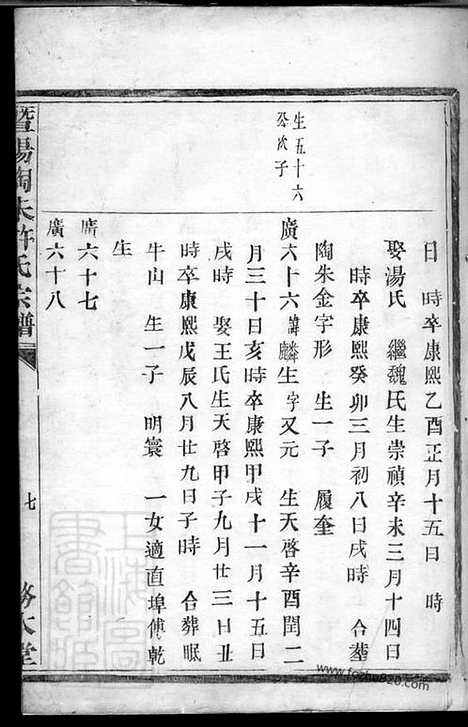 日　時卒康熙乙酉正月十五日　時
娶湯氏　繼魏氏生崇禎辛未三月十四日
時卒康熙癸卯三月初八日戌時　合塟
陶朱金字形　生一子　履奎
生五十六
公次子
廣六十六諱麟生字又元　生天啓辛酉閏二
月三十日亥時卒康熙甲戌十一月十五日
戌時　娶王氏生天啓甲子九月廿三日丑
時卒康熙戊辰八月廿九日子時　合葬眠
牛山　生一子　明寰　一女適直埠傅乾
生
廣六十七
廣六十八
暨陽陶朱許氏宗譜
七
務本堂
上海圖書館藏
www.fozhu920.com